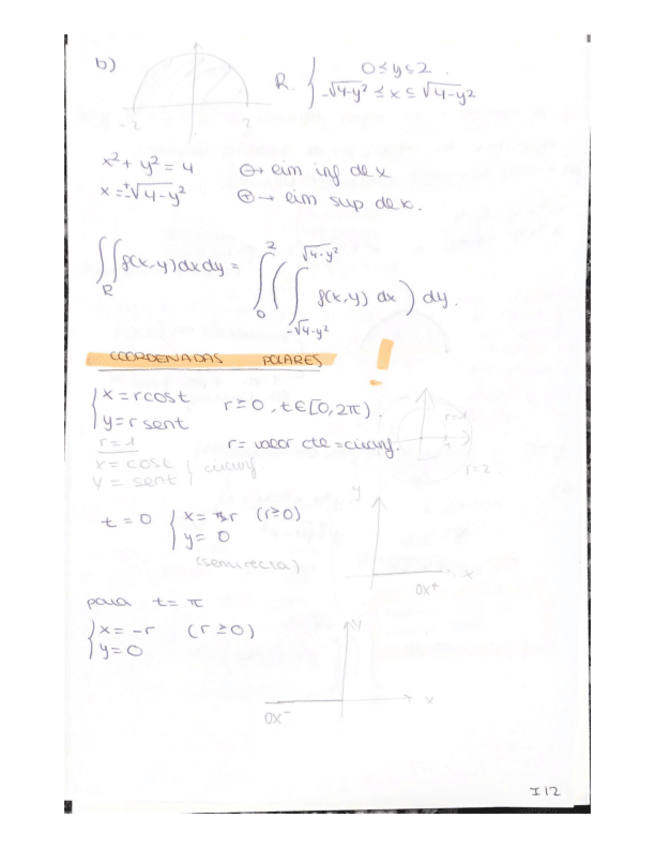 b)
R. { 0 ≤ y ≤ 2.
-√4-y² ≤ x ≤ √4-y²
-2 2
x² + y² = 4 ⊖→ lim inf de x
x = ±√4-y² ⊕→ lim sup de x.
∬_R f(x,y) dx dy = ∫_0^2 ( ∫_{-√4-y²}^{√4-y²} f(x,y) dx ) dy.
COORDENADAS POLARES !
{ x = r cos t
y = r sen t r ≥ 0, t ∈ [0, 2π).
r = 1 r = valor cte = circunf.
x = cos t } circunf.
y = sen t
r=1
r=2
t = 0 { x = r (r ≥ 0)
y = 0
(semirecta)
y
x
OX⁺
para t = π
{ x = -r (r ≥ 0)
y = 0
y
x
OX⁻
I12